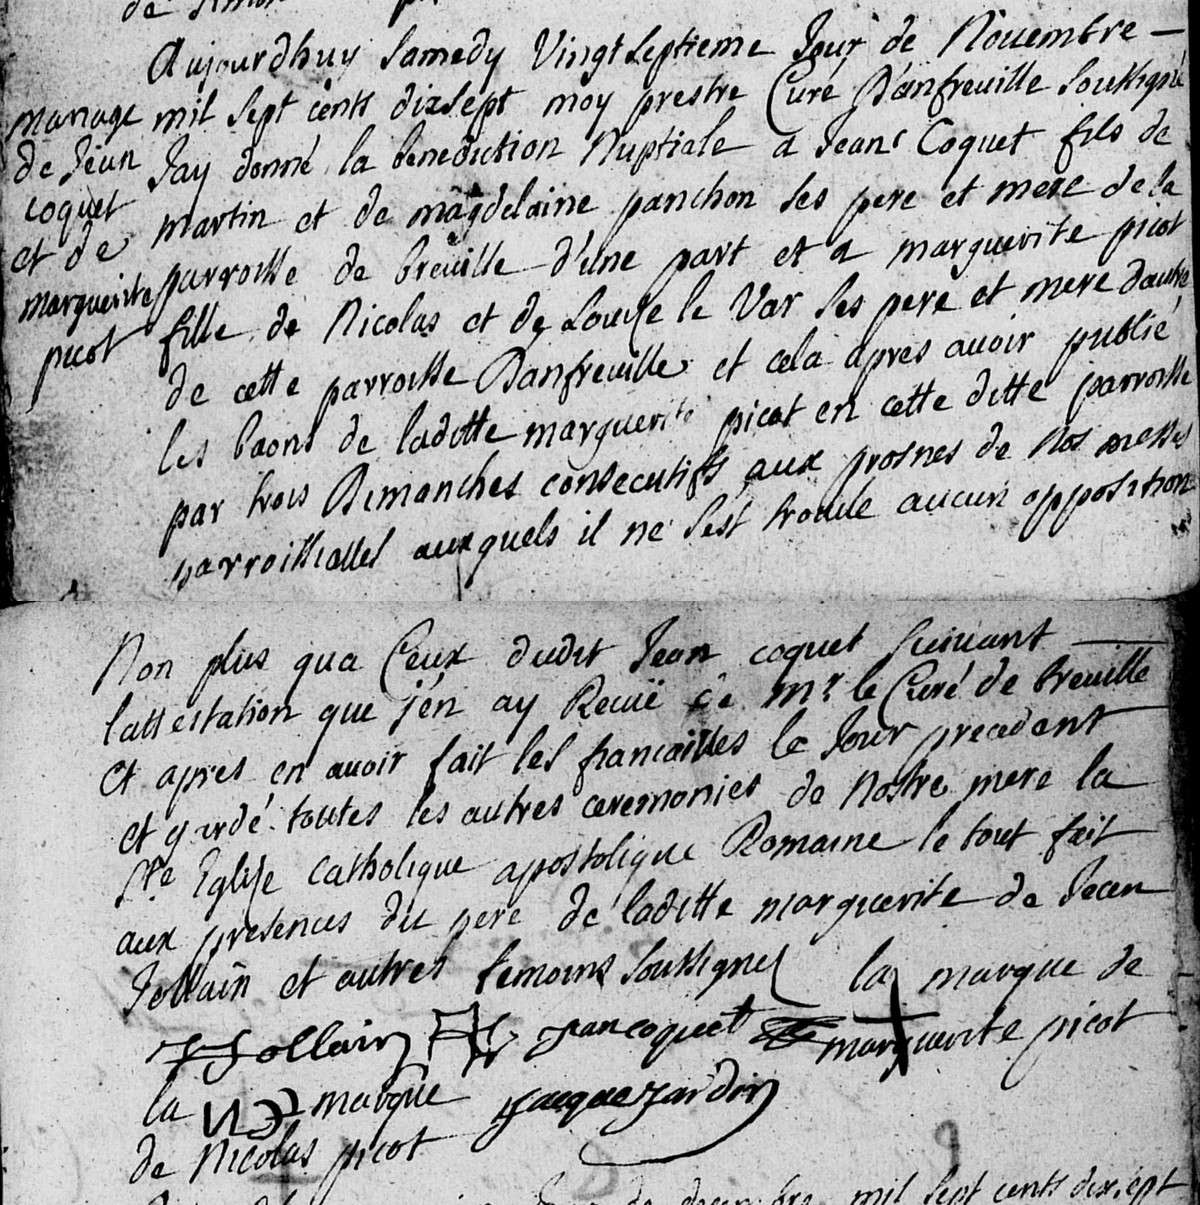 Aujourdhuy Samedy Vingt Septieme Jour de Nouembre
mil Sept cents dixsept moy prestre Curé Danfreuille Soussigné
Jay donné la benediction Nuptiale a Jean Coquet fils de
martin et de magdelaine panchon ses pere et mere de la
parroisse de breuille d'une part et a marguerite picot
fille de Nicolas et de Louise le Var ses pere et mere dautre
de cette parroisse Danfreuille et cela apres auoir publié
les baons de laditte marguerite picot en cette ditte parroisse
par trois Dimanches consecutifs aux prosnes de Nos messes
parroissialles auxquels il ne sest trouué aucun opposition
mariage
de Jean
Coquet
et de
marguerite
picot
Non plus qua Ceux dudit Jean coquet Suiuant
lattestation que j'en ay Receüe de Mr. le Curé de breuille
et apres en auoir fait les fiancailles le Jour precedent
et gardé toutes les autres ceremonies de Nostre mere la
Ste Eglise Catholique apostolique Romaine le tout fait
aux presences du pere de laditte marguerite de Jean
Jollain et autres temoins Soussignes
la marque de
marguerite picot
Jollain
Jan coquet
la marque
de Nicolas picot
Jacque Jardin
de decembre mil Sept cents dixsept